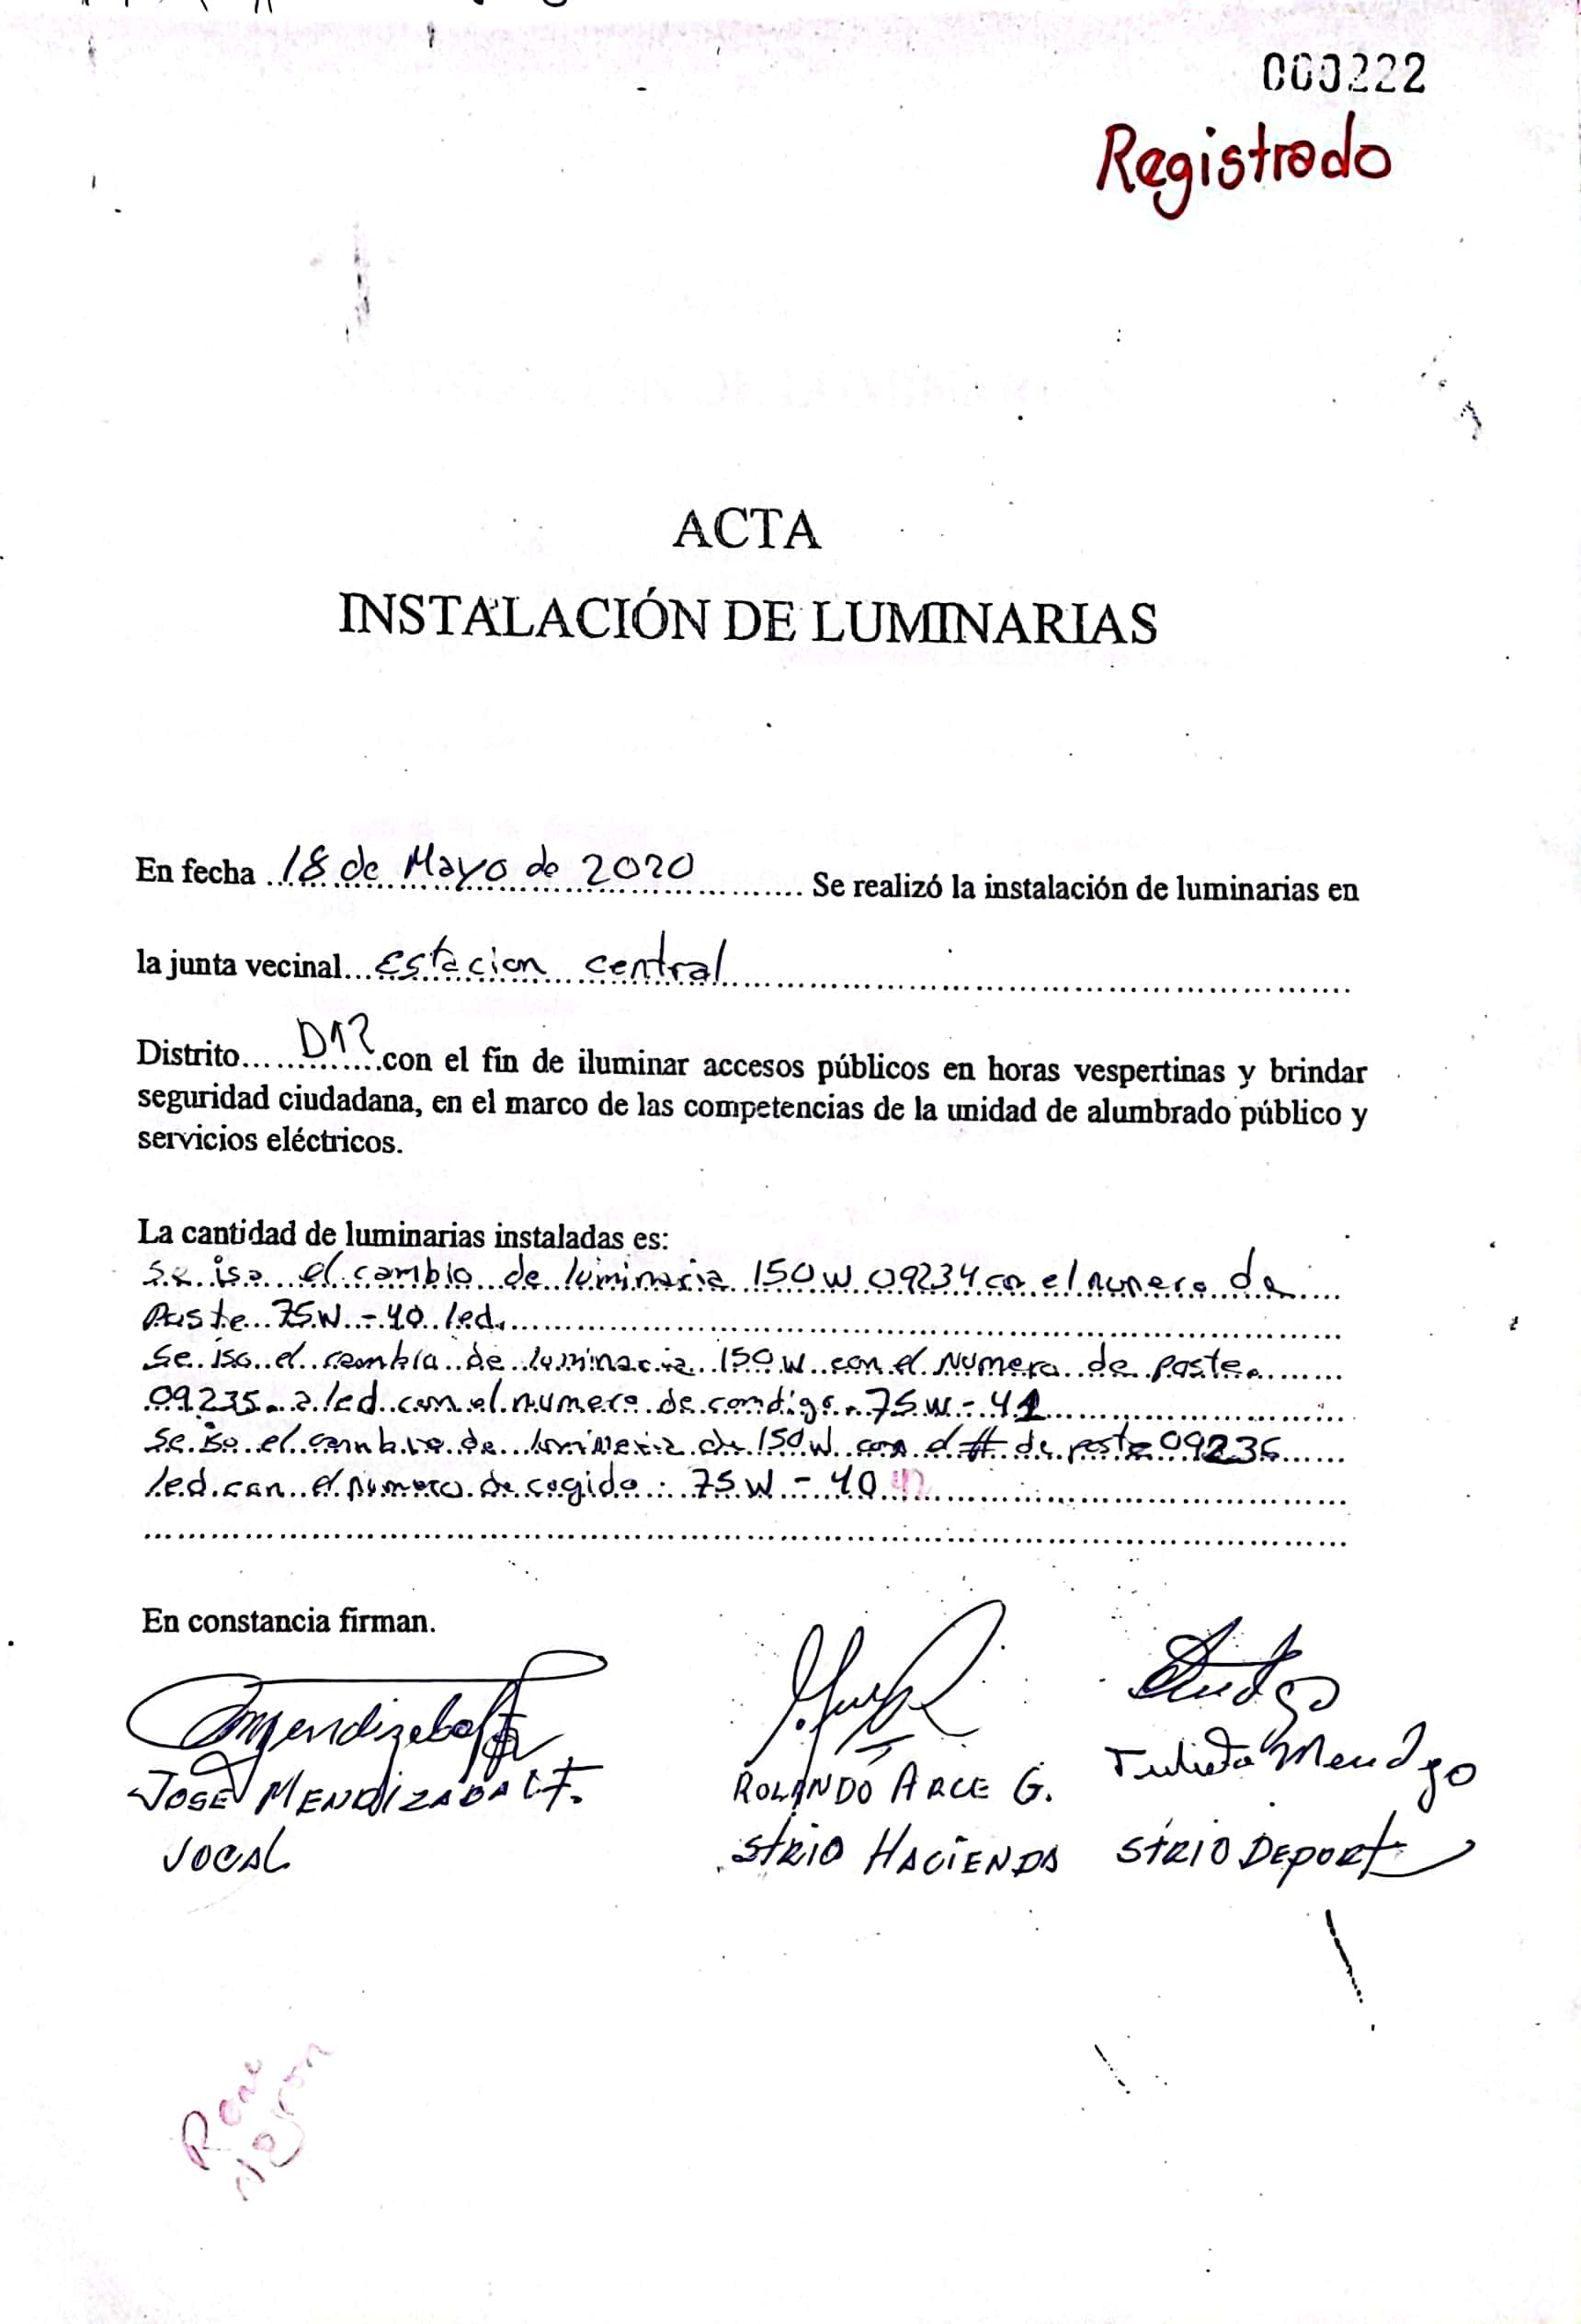 000222
Registrado
ACTA
INSTALACIÓN DE LUMINARIAS
En fecha 18 de Mayo de 2020 Se realizó la instalación de luminarias en
la junta vecinal Estacion central
Distrito D12 con el fin de iluminar accesos públicos en horas vespertinas y brindar
seguridad ciudadana, en el marco de las competencias de la unidad de alumbrado público y
servicios eléctricos.
La cantidad de luminarias instaladas es:
Se iso el cambio de luminaria 150 W 09234 con el numero de
Poste 75W - 40 led.
Se iso el cambio de luminaria 150 W con el Numero de poste
09235 a led con el numero de condigo 75 W - 41
Se iso el cambio de luminaria de 150 W con el # de poste 09236
led con el numero de cogido: 75 W - 40 42
En constancia firman.
JOSE MENDIZABAL F. ROLANDO ARCE G. Julieta Mendgo
VOCAL STRIO HACIENDA STRIO DEPORT
Rene